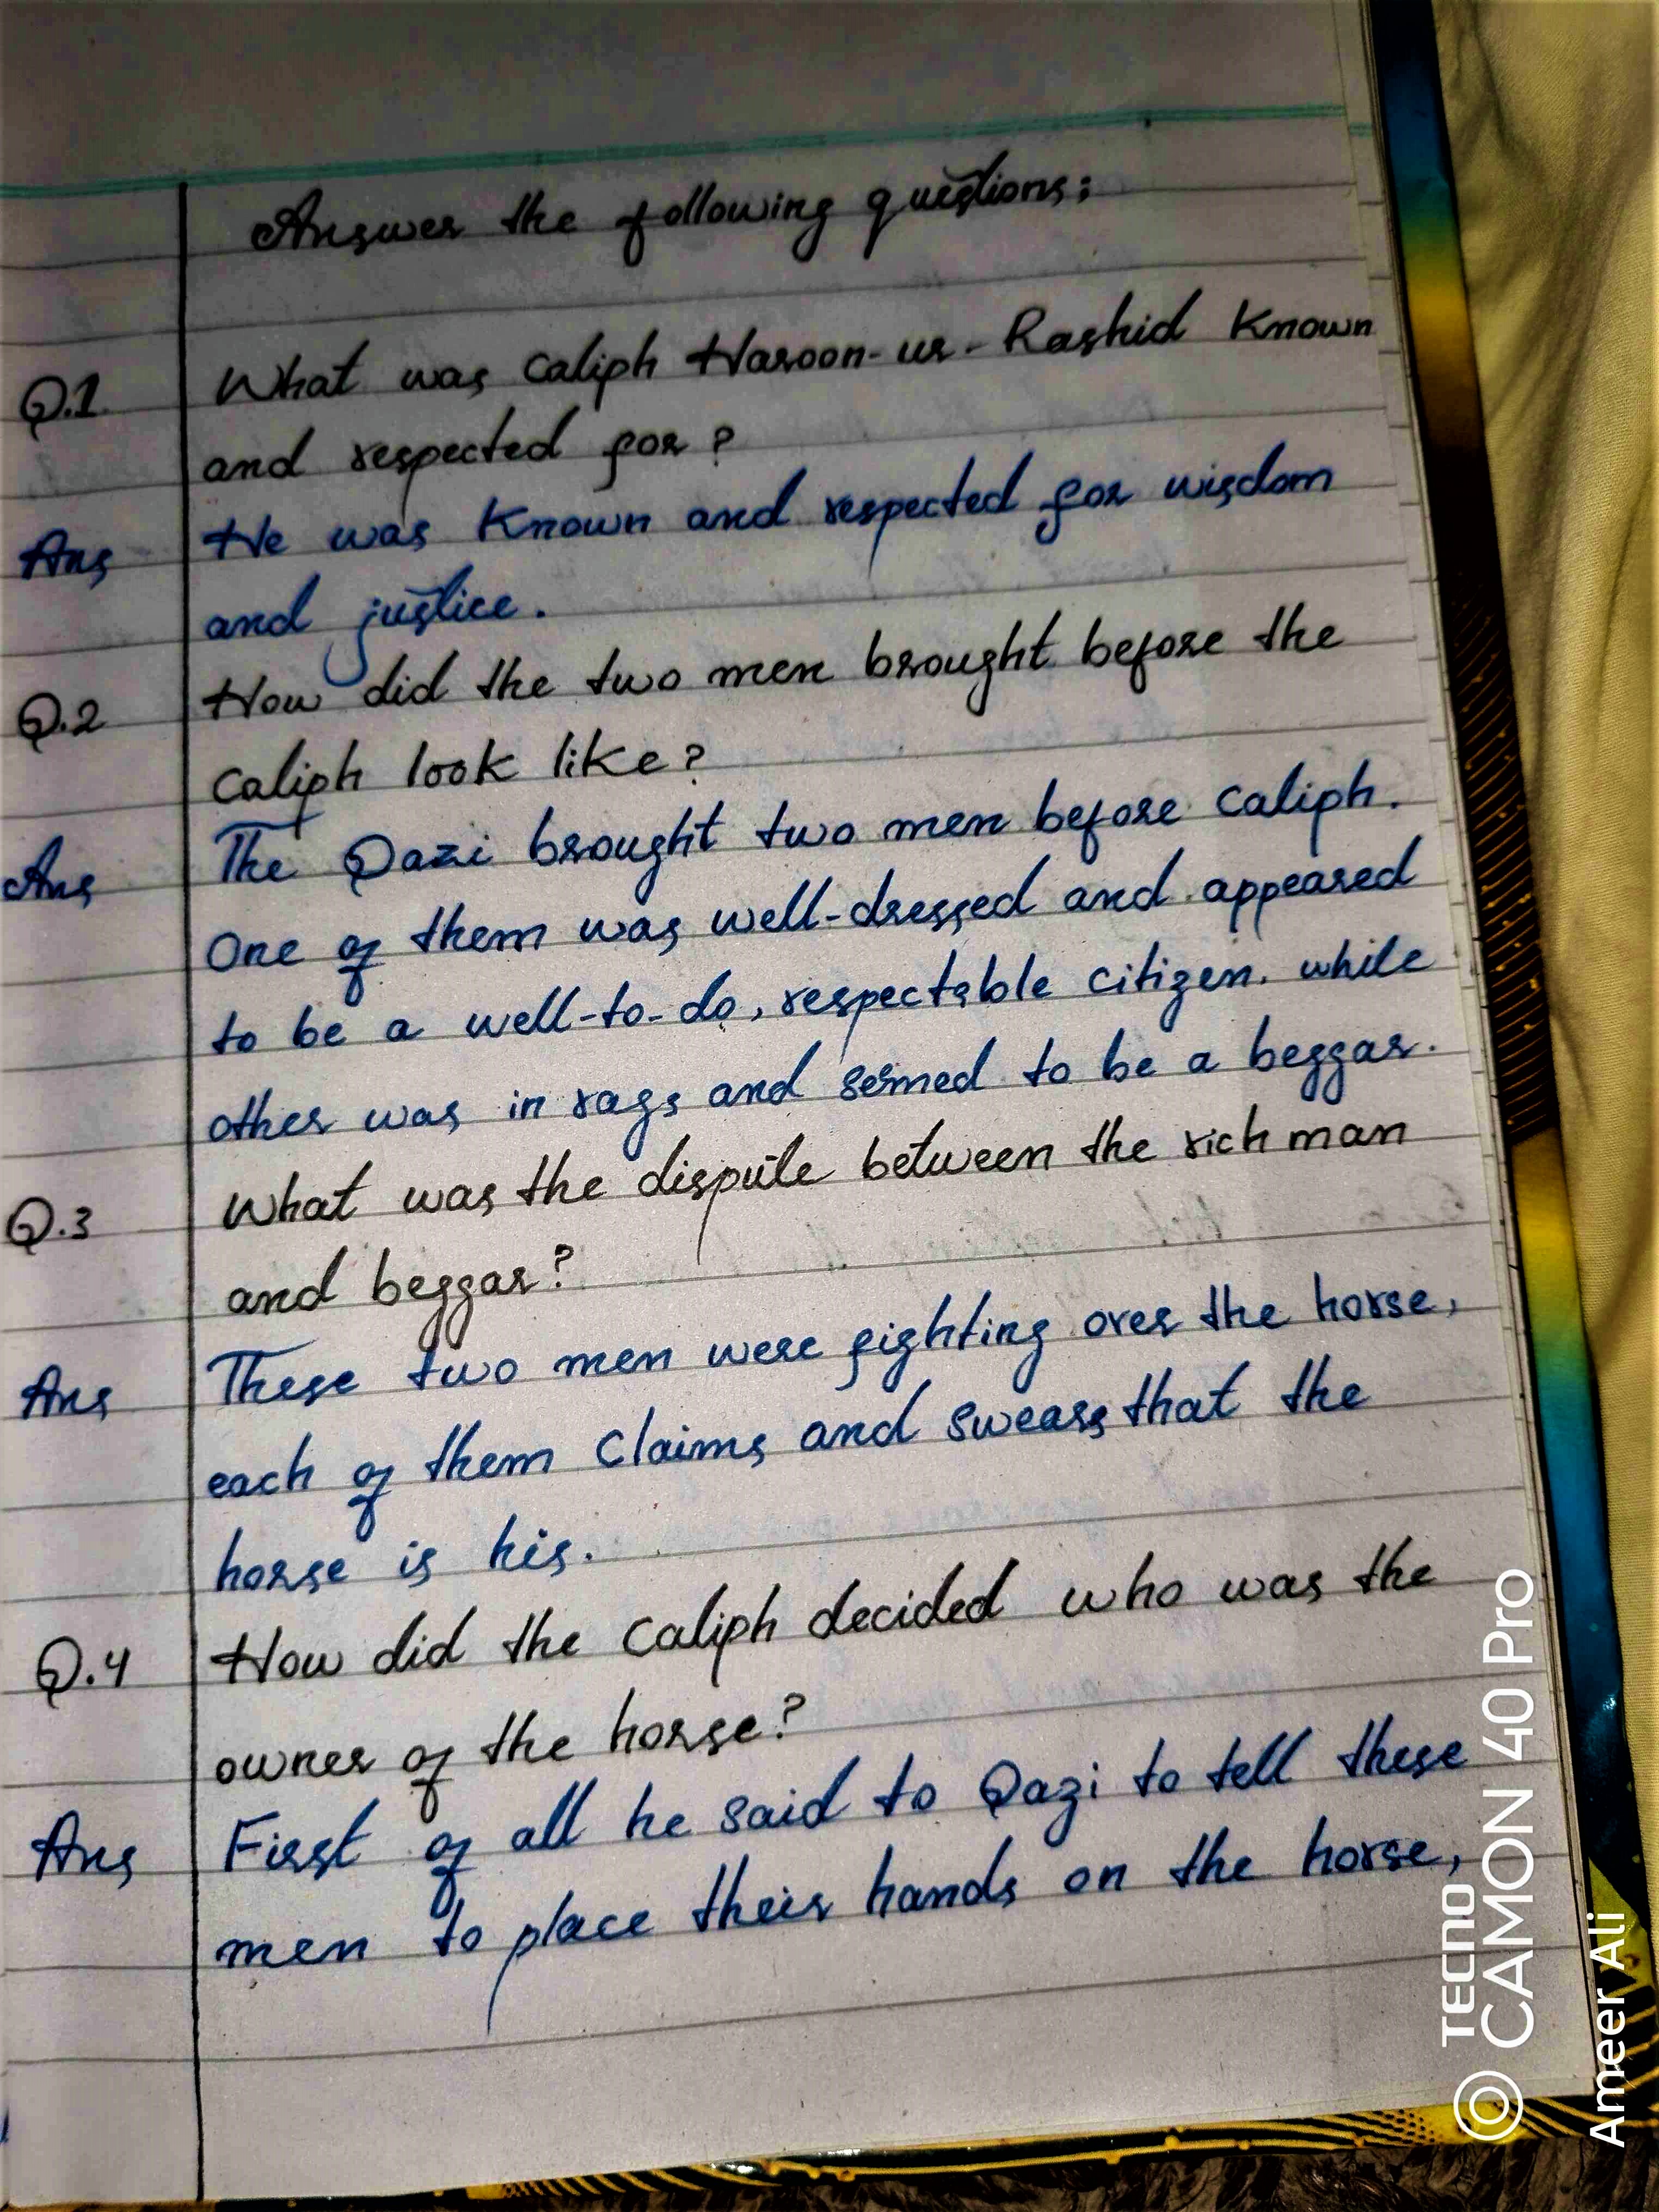 Answer the following questions:
Q.1 What was caliph Haroon-ur-Rashid Known
and respected for?
Ans He was Known and respected for wisdom
and justice.
Q.2 How did the two men brought before the
caliph look like?
Ans The Qazi brought two men before caliph.
One of them was well-dressed and appeared
to be a well-to-do, respectable citizen. while
other was in rags and semed to be a beggar.
Q.3 What was the dispute between the rich man
and beggar?
Ans These two men were fighting over the horse,
each of them Claims and swears that the
horse is his.
Q.4 How did the caliph decided who was the
owner of the horse?
Ans First of all he said to Qazi to tell these
men to place their hands on the horse,
TECNO
CAMON 40 Pro
Ameer Ali